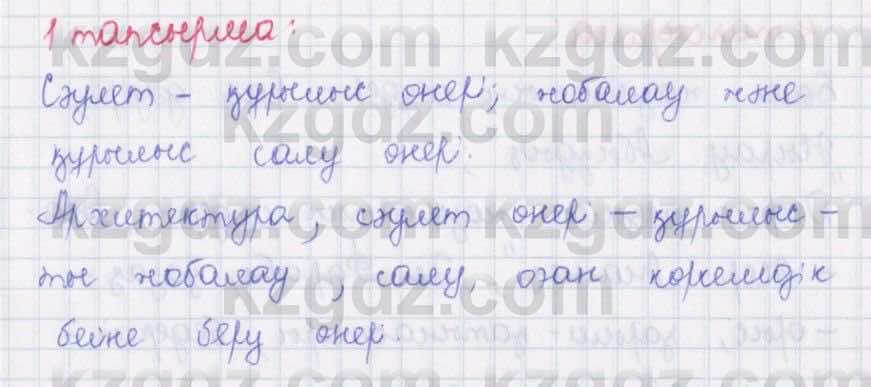 1 тапсырма:
Сәулет – құрылыс өнері; жобалау және
құрылыс салу өнері.
Архитектура, сәулет өнері – құрылыс –
ты жобалау, салу, оған көркемдік
бейне беру өнері.
kzgdz.com